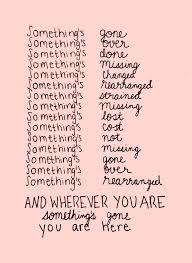 Something's gone
Something's over
Something's done
Something's Missing
Something's changed
Something's rearranged
Something's strained
Something's Missing
Something's lost
Something's cost
Something's not
Something's missing
Something's gone
Something's over
Something's rearranged
AND WHEREVER YOU ARE
something's gone
you are here